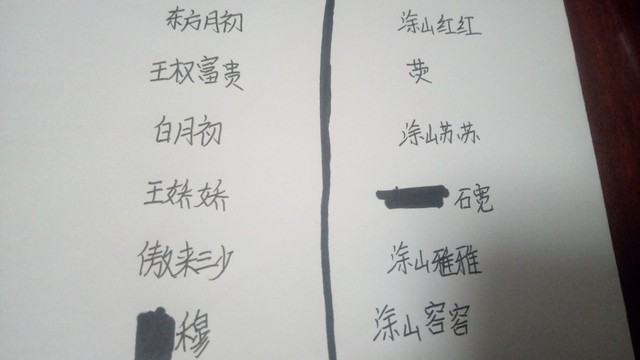 东方月初 涂山红红
王权富贵 荧
白月初 涂山苏苏
王娇娇 石宽
傲来三少 涂山雅雅
穆 涂山容容